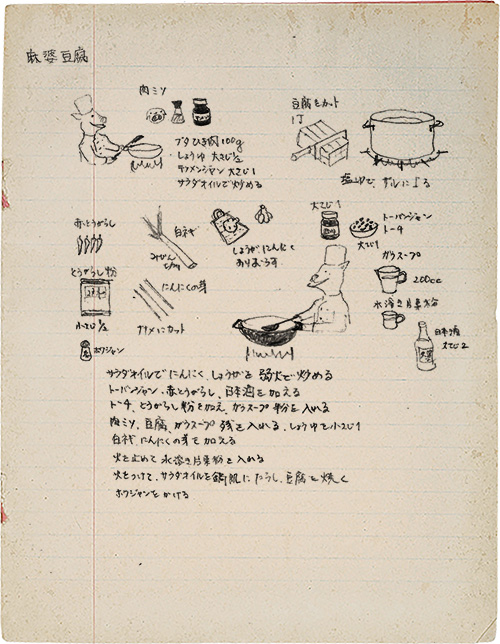 麻婆豆腐
肉ミソ
ブタひき肉100g
しょうゆ 大さじ1/2
テンメンジャン 大さじ1
サラダオイルで炒める
豆腐をカット
1丁
塩ゆで、ザルに上る
赤とうがらし
とうがらし粉
小さじ1/2
ホワジャン
白ネギ
みじん切り
にんにくの芽
ナナメにカット
しょうがにんにく
すりおろす
大さじ1
トーバンジャン
トーチ
大さじ1
ガラスープ
200cc
水溶き片栗粉
日本酒
大さじ2
サラダオイルでにんにく、しょうがを弱火で炒める
トーバンジャン、赤とうがらし、日本酒を加える
トーチ、とうがらし粉を加え、ガラスープ半分を入れる
肉ミソ、豆腐、ガラスープ残を入れる、しょうゆを小さじ1
白ネギ、にんにくの芽を加える
火を止めて水溶き片栗粉を入れる
火をつけて、サラダオイルを鍋肌にたらし、豆腐を焼く
ホワジャンをかける